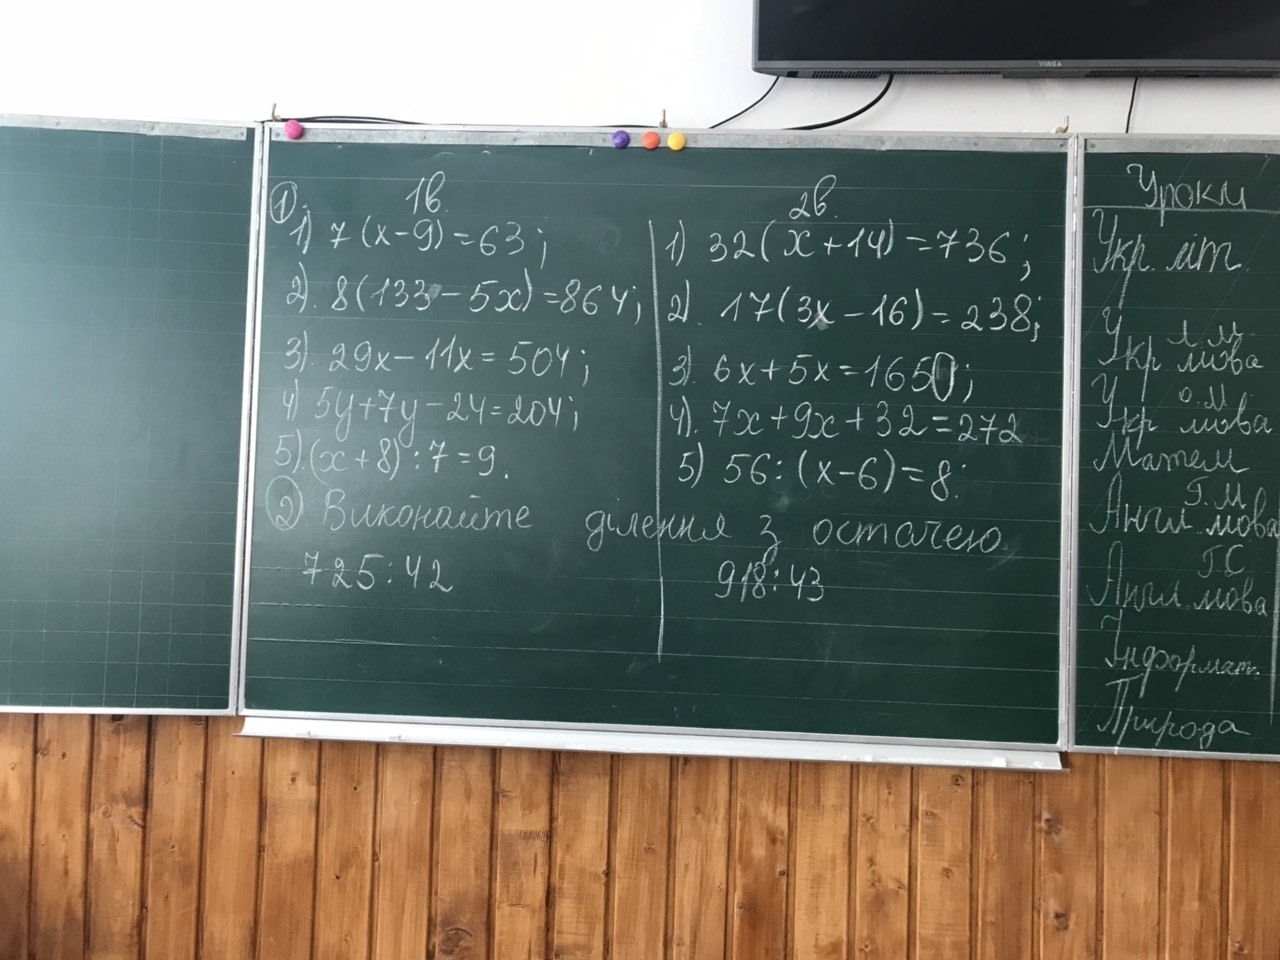 VINGA
1в.
① 1) 7(x-9)=63;
2). 8(133-5x)=864;
3). 29x-11x=504;
4) 5y+7y-24=204;
5).(x+8):7=9.
2в.
1) 32(x+14)=736;
2). 17(3x-16)=238;
3). 6x+5x=1650;
4). 7x+9x+32=272
5) 56:(x-6)=8.
② Виконайте ділення з остачею
725:42
918:43
Уроки
Укр. літ.
Л.М
Укр мова
О.М
Укр мова
Матем
Г.М
Англ. мова
Г.С
Англ. мова
Інформат.
Природа